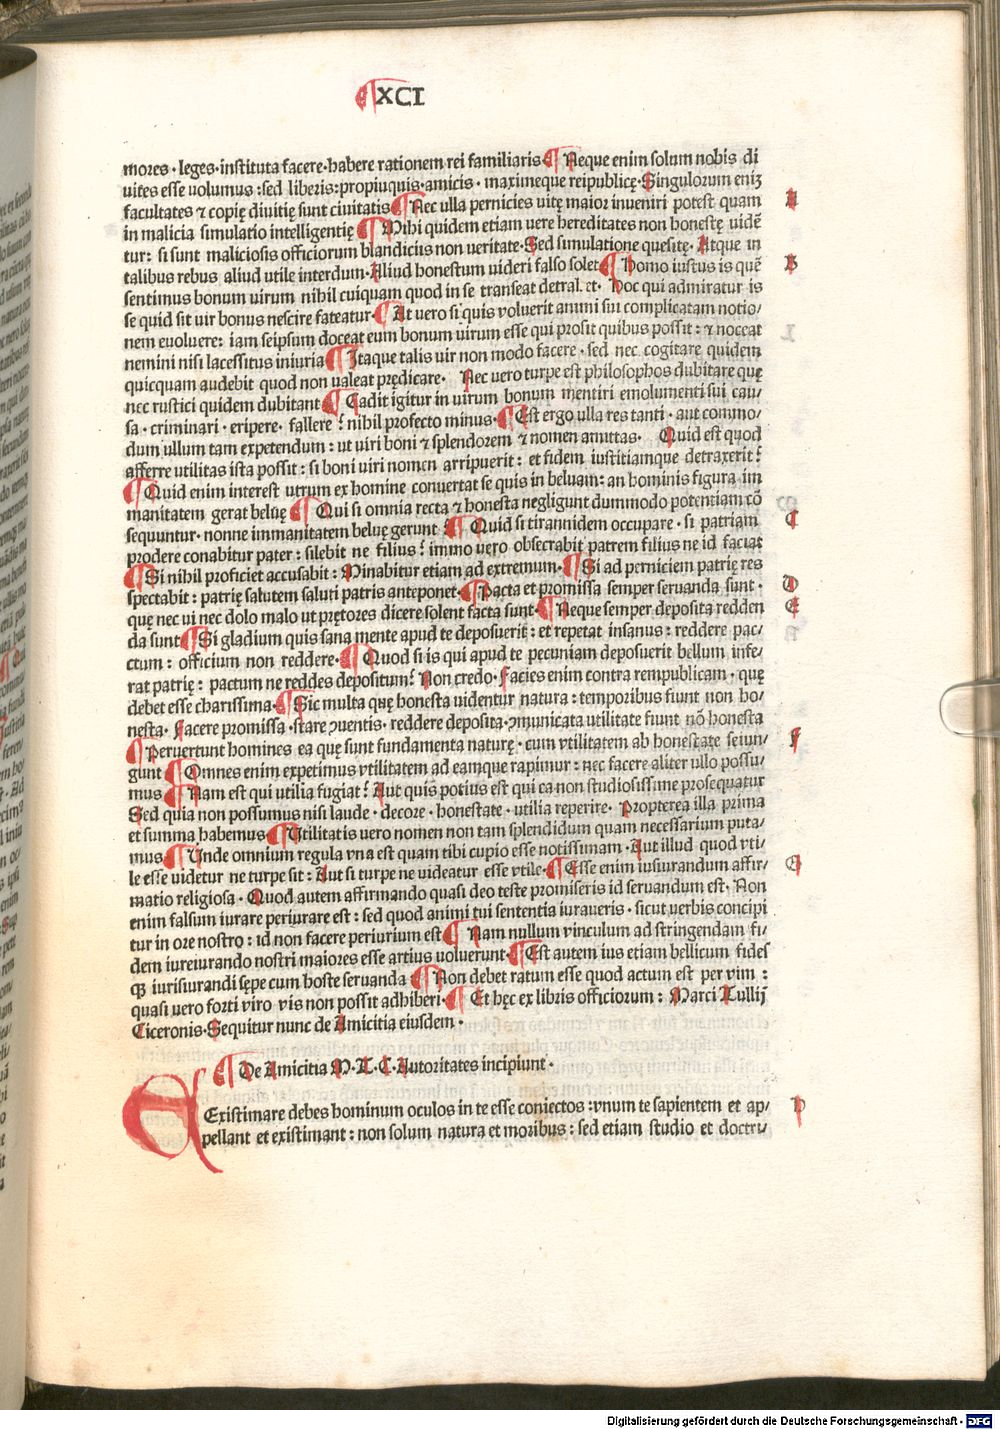 ¶XCI
mores · leges · instituta facere · habere rationem rei familiaris ¶ Neque enim solum nobis di
uites esse uolumus : sed liberis : propiuquis · amicis · maximeque reipublicę · Singulorum eniʒ
facultates ⁊ copię diuitię sunt ciuitatis ¶ Nec ulla pernicies uitę maior inueniri potest quam
A
in malicia simulatio intelligentię ¶ Mihi quidem etiam uere hereditates non honestę uidē
tur : si sunt maliciosis officiorum blandiciis non ueritate · Sed simulatione quesitę · Atque in
talibus rebus aliud utile interdum · Aliud honestum uideri falso solet ¶ Homo iustus is quē
B
sentimus bonum uirum nihil cuiquam quod in se transeat detral et · Hoc qui admiratur is
se quid sit uir bonus nescire fateatur · ¶ At uero si quis voluerit animi sui complicatam notio/
nem euoluere : iam seipsum doceat eum bonum uirum esse qui prosit quibus possit : ⁊ noceat
nemini nisi lacessitus iniuria ¶ Itaque talis uir non modo facere · sed nec cogitare quidem
quicquam audebit quod non ualeat prędicare · Nec uero turpe est philosophos dubitare quę
nec rustici quidem dubitant ¶ Cadit igitur in uirum bonum mentiri emolumenti sui cau/
sa · criminari · eripere · fallere ? nihil profecto minus · ¶ Est ergo ulla res tanti · aut commo/
dum ullum tam expetendum : ut uiri boni ⁊ splendorem ⁊ nomen amittas · Quid est quod
afferre utilitas ista possit : si boni uiri nomen arripuerit : et fidem iustitiamque detraxerit ?
¶ Quid enim interest utrum ex homine conuertat se quis in beluam : an hominis figura im
manitatem gerat beluę ¶ Qui si omnia recta ⁊ honesta negligunt dummodo potentiam cō
sequuntur · nonne immanitatem beluę gerunt ? ¶ Quid si tirannidem occupare · si patriam
C
prodere conabitur pater : silebit ne filius ? immo uero obsecrabit patrem filius ne id faciat
¶ Si nihil proficiet accusabit : Minabitur etiam ad extremum · ¶ Si ad perniciem patrię res
spectabit : patrię salutem saluti patris anteponet · ¶ Pacta et promissa semper seruanda sunt ·
D
quę nec ui nec dolo malo ut prętores dicere solent facta sunt · ¶ Neque semper deposita redden
E
da sunt ¶ Si gladium quis sana mente apud te deposuerit : et repetat insanus : reddere pac/
ctum : officium non reddere · ¶ Quod si is qui apud te pecuniam deposuerit bellum infe/
rat patrię : pactum ne reddes depositum ? Non credo · Facies enim contra rempublicam · quę
debet esse charissima · ¶ Sic multa quę honesta uidentur natura : temporibus fiunt non ho/
nesta · Facere promissa · stare ꝯuentis · reddere deposita · ꝯmunicata utilitate fiunt nō honesta
¶ Peruertunt homines ea que sunt fundamenta naturę · cum vtilitatem ab honestate seiun/
F
gunt ¶ Omnes enim expetimus vtilitatem ad eamque rapimur : nec facere aliter ullo possu/
mus ¶ Nam est qui utilia fugiat ? Aut quis potius est qui ea non studiosissime prosequatur
Sed quia non possumus nisi laude · decore · honestate · utilia reperire · Propterea illa prima
et summa habemus ¶ Utilitatis uero nomen non tam splendidum quam necessarium puta/
mus ¶ Unde omnium regula vna est quam tibi cupio esse notissimam · Aut illud quod vti/
le esse uidetur ne turpe sit : Aut si turpe ne uideatur esse vtile · ¶ Esse enim iusiurandum affir/
G
matio religiosa · Quod autem affirmando quasi deo teste promiseris id seruandum est · Non
enim falsum iurare periurare est : sed quod animi tui sententia iuraueris · sicut uerbis concipi
tur in ore nostro : id non facere periurium est ¶ Nam nullum vinculum ad stringendam fi/
dem iureiurando nostri maiores esse artius uoluerunt · ¶ Est autem ius etiam bellicum fides
qꝫ iurisiurandi sępe cum hoste seruanda ¶ Non debet ratum esse quod actum est per vim :
quasi uero forti viro vis non possit adhiberi · ¶ Et hęc ex libris officiorum : Marci Tullij
Ciceronis · Sequitur nunc de Amicitia eiusdem ·
¶ De Amicitia M · T · C · Autoritates incipiunt ·
Existimare debes hominum oculos in te esse coniectos : vnum te sapientem et ap/
pellant et existimant : non solum natura et moribus : sed etiam studio et doctri/
Digitalisierung gefördert durch die Deutsche Forschungsgemeinschaft - DFG